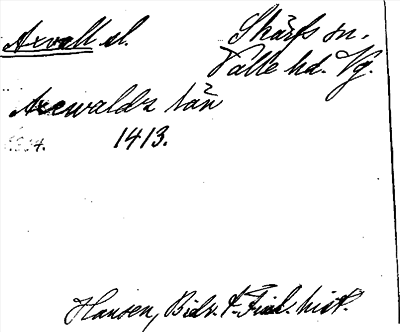 Axvall sl. Skärfs sn.
Valle hd. Vg.
Axewaldz län
1413.
Hansen, Bidr. t. Finl. hist.